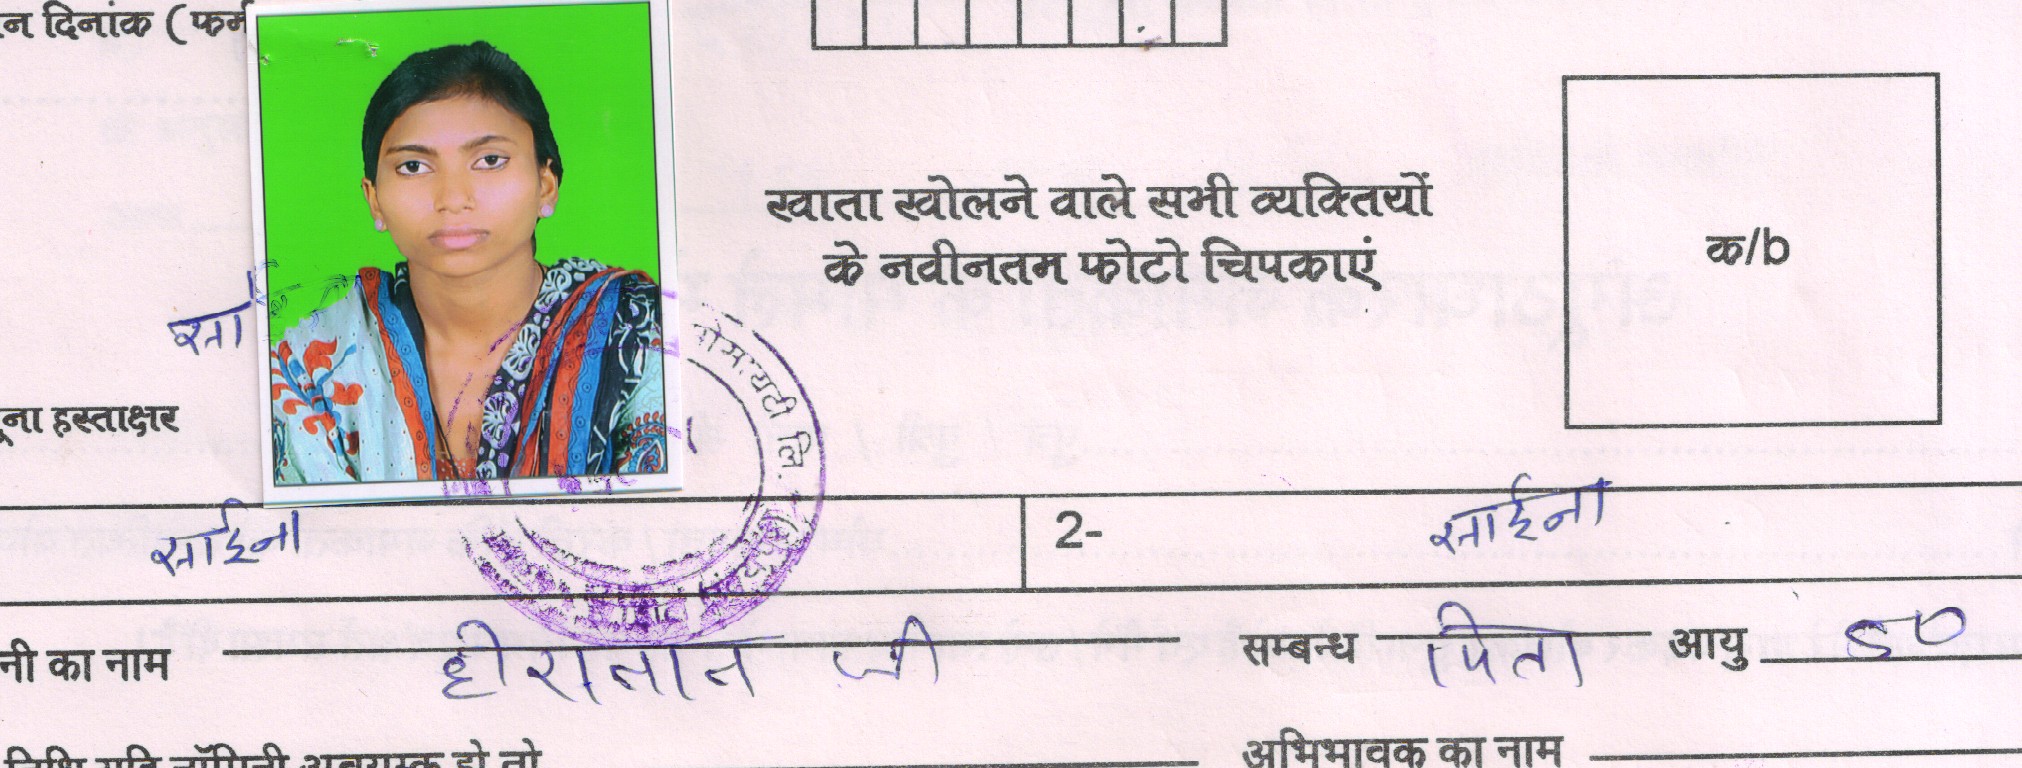 न दिनांक (फर्म
खाता खोलने वाले सभी व्यक्तियों
के नवीनतम फोटो चिपकाएं
क/b
सा
ूना हस्ताक्षर
सोसायटी लि.
साईना
2- साईना
नी का नाम हीरालाल जी सम्बन्ध पिता आयु 50
तिथि यदि नॉमिनी अवयस्क हो तो अभिभावक का नाम